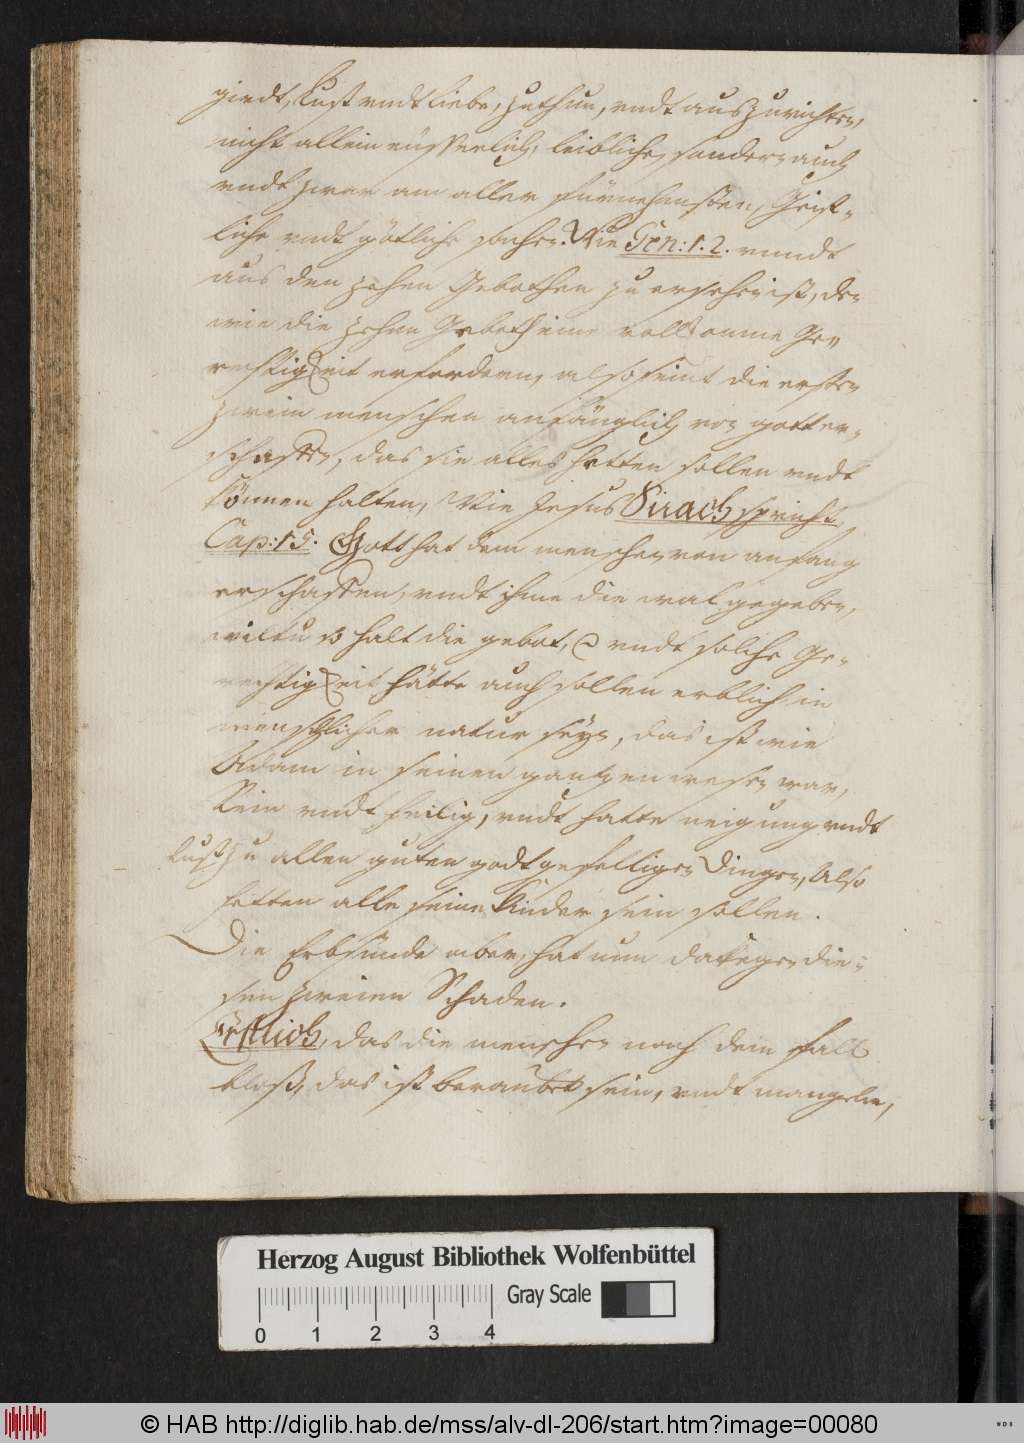 giedt, Lust vndt Liebe, zuthun, vndt auszurichten,
nicht allein eüsserlich, leibliche, sondern auch
vndt zwar am aller fürnehmsten, Geist-
liche vndt götliche sachen. Wie Gen: 1. 2. vnndt
aus den zehen Gebothen zu ersehen ist, den
wie die zehen Geboth eine vollkomne Ge-
rechtigkeit erfordern, also seint die ersten
zwein menschen anfänglich von gott er-
schaffen, das sie alles hetten sollen vndt
können halten, Wie Jesus Sirach spricht
Cap: 15. Gott hat dem menschen von anfang
erschaffen, vndt ihme die wal gegeben,
wiltu so halt die gebot, vndt solche Ge-
rechtigkeit hätte auch sollen erblich in
menschlicher natur seyn, das ist wie
Adam in seinen gantzen wesen war,
Rein vndt heilig, vndt hatte neigung vndt
lust zu allen guten godtgefelligen Dingen, Also
hetten alle seine Kinder sein sollen.
Die Erbsünde aber, hat nun dakegen die-
sen zweien Schaden.
Erstlich, das die menschen nach dem fall
bloß, das ist beraubet sein, vndt mangeln,
Herzog August Bibliothek Wolfenbüttel
Gray Scale
0 1 2 3 4
© HAB http://diglib.hab.de/mss/alv-dl-206/start.htm?image=00080